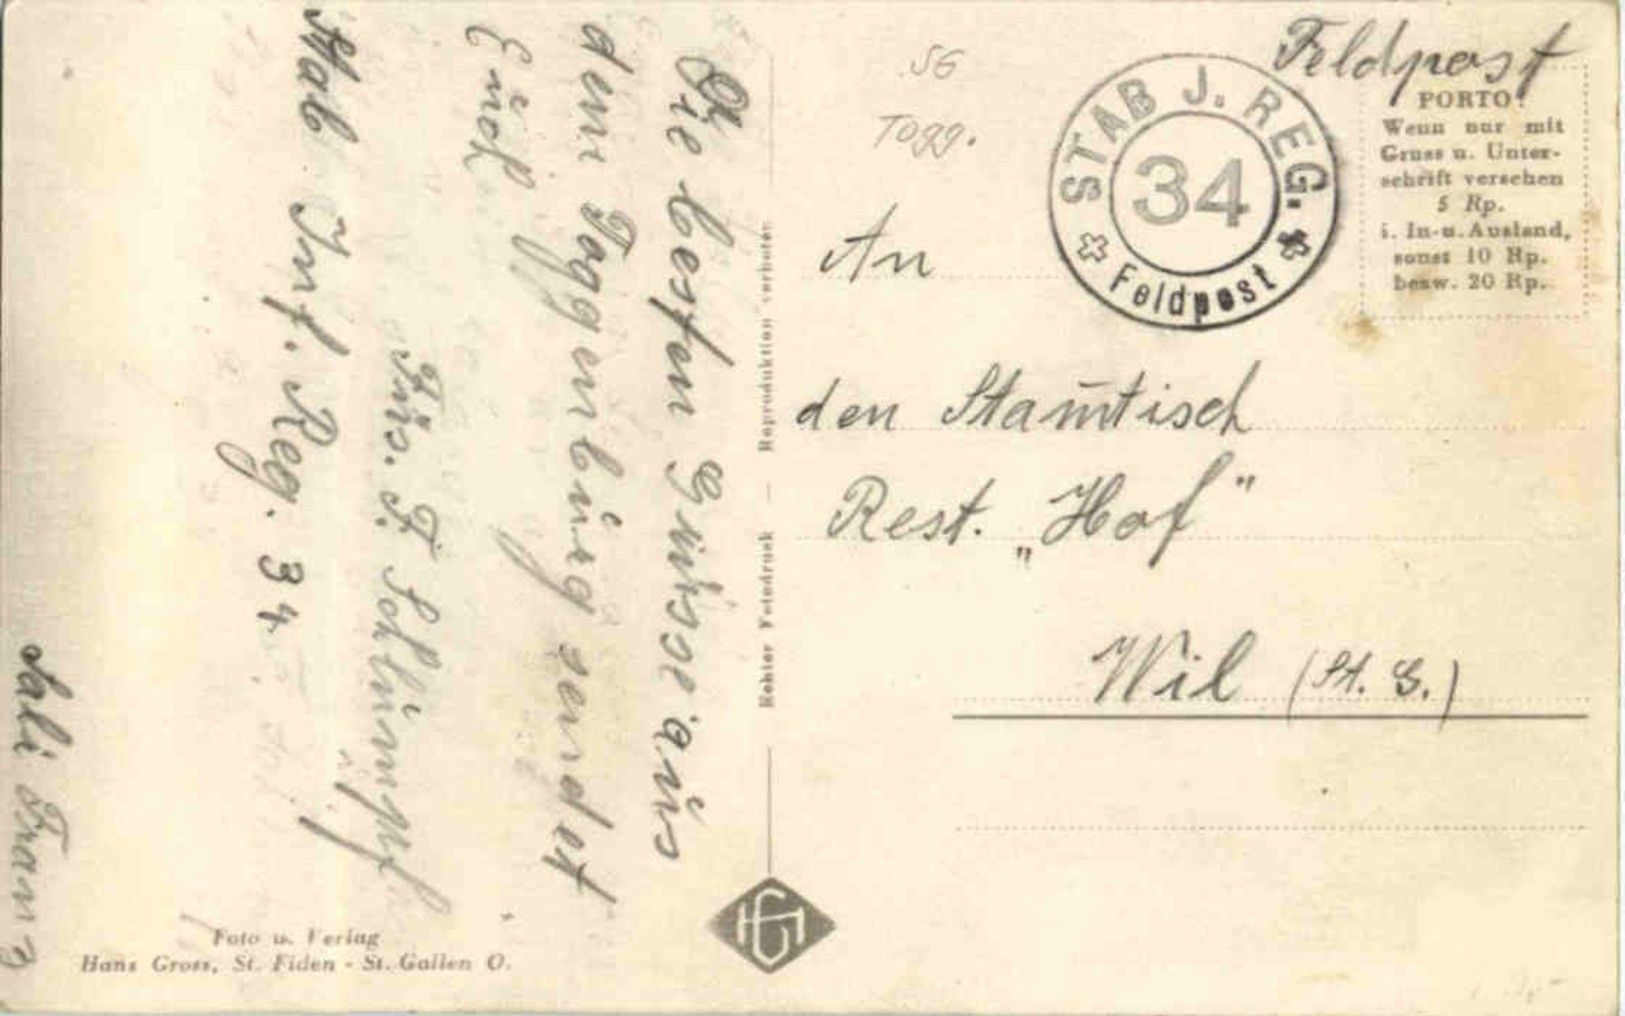 Die besten Grüsse aus
dem Toggenburg sendet
Euch
Füs. F. Schlumpf
Stab Inf. Reg. 34
Sali Franz
Foto u. Verlag
Hans Gross, St. Fiden - St. Gallen O.
Reproduktion verboten
Fotodruck
HG
SG
Togg.
Feldpost
STAB J. REG.
34
Feldpost
PORTO!
Wenn nur mit
Gruss u. Unter-
schrift versehen
5 Rp.
i. In-u. Ausland,
sonst 10 Rp.
bezw. 20 Rp.
An
den Stam̅tisch
Rest. „Hof"
Wil (St. G.)